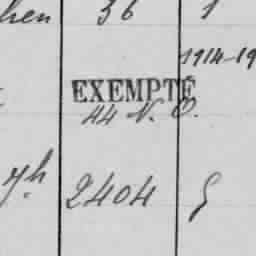 hen 36 1
1914-19
EXEMPTÉ
44 N. O.
yh 2404 G